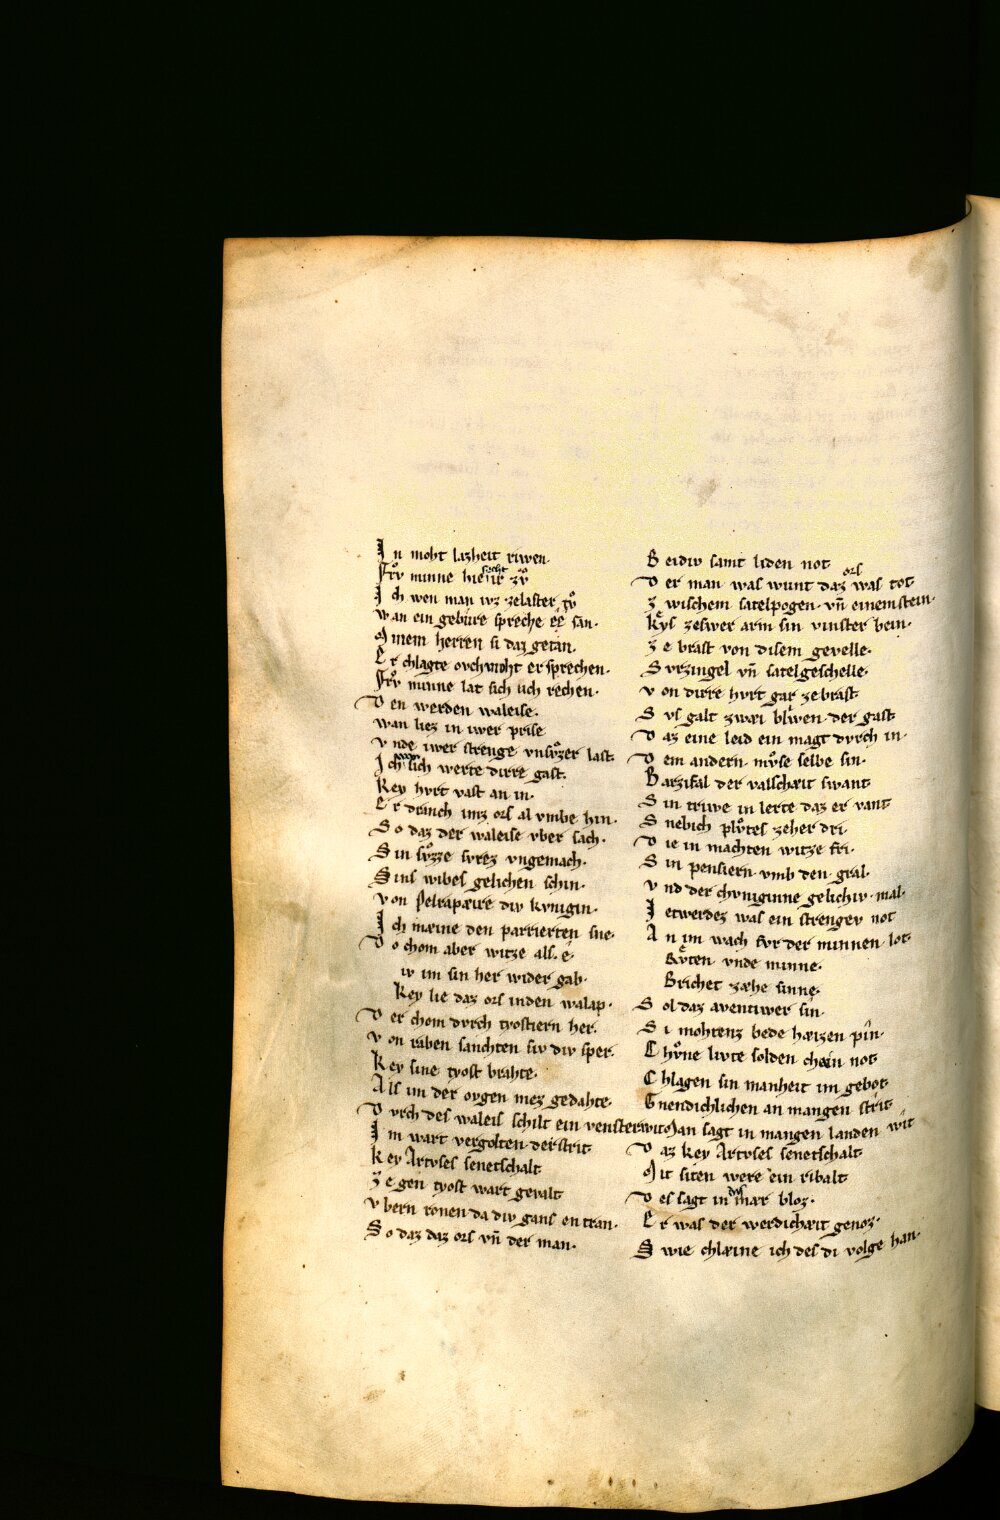 I n moht lazheit riwen·
Froͮ minne hie secht ir zvͦ
I ch wen man ivz zelaster tvͦ
W an ein gebiure spreche êe san·
M inem herren si daz getan.
E r chlagte ovch moht er sprechen·
Froͮ minne lat sich uch rechen·
D en werden waleise·
wan liez in iwer prise
v nde iwer strenge vnsvͦzer last
I ch lich werte dirre gast.
Key hvrt vast an in·
E r dranch imz ors al vmbe hin·
S o daz der waleise vber sach·
S in svͦzze svrez vngemach·
S ins wibes gelichen schin·
v on Pelrapæire div kvnigin·
I ch mæine den parrierten sne·
D o chom aber witze als· ê·
iv im sin her wider gab·
Key lie daz ors inden walap·
D er chom dvrch tyostiern her·
v on raben sanchten siv div sper·
Key sine tyost brahte·
A ls im der oygen mez gedahte·
D vrch des waleis schilt ein venster wit
I m wart vergolten der strit
Key Artvses senetschalt
Z e gen tyost wart gevalt
v bern ronen da div gans entran·
S o daz daz ors vñ der man·
B eidiv samt liden not
D er man was wunt daz ors was tot
z wischem satelpogen· vñ einem stein·
Kaͤys zeswer arm sin vinster bein·
Z e brast von disem gevelle·
S vrzingel vñ satelgeschelle·
v on dirre hvrt gar zebrast·
S vs galt zwæi blíwen· der gast
D az eine leid ein magt dvrch in·
D em andern· mvͦse selbe sin·
Barzifal der vallschæit swant
S in triwe in lerte daz er vant
S nebich plvͦtes zeher dri·
D ie in machten witze fri·
S in pensiern· vmb den· gral·
v nd der chvniginne gelichiv· mal·
I etwerdez was ein strengev not
A n im wach fvr der minnen· lot·
Rvͤten· vnde minne·
Brichet zæhe sinne·
S ol daz aventiwer sin·
S i mohtenz bede hæizen pîn·
Chvͦne livte solden chæin not
C hlagen sin manheit im gebot·
Gnendichlichen an mangen strit·
Man sagt in mangen landen wit
D az Key Artvses senetschalt
M it siten were ein ribalt
D es sagt in min mær bloz·
E r was der werdichæit genoz·
S wie chlæine ich des di volge han·